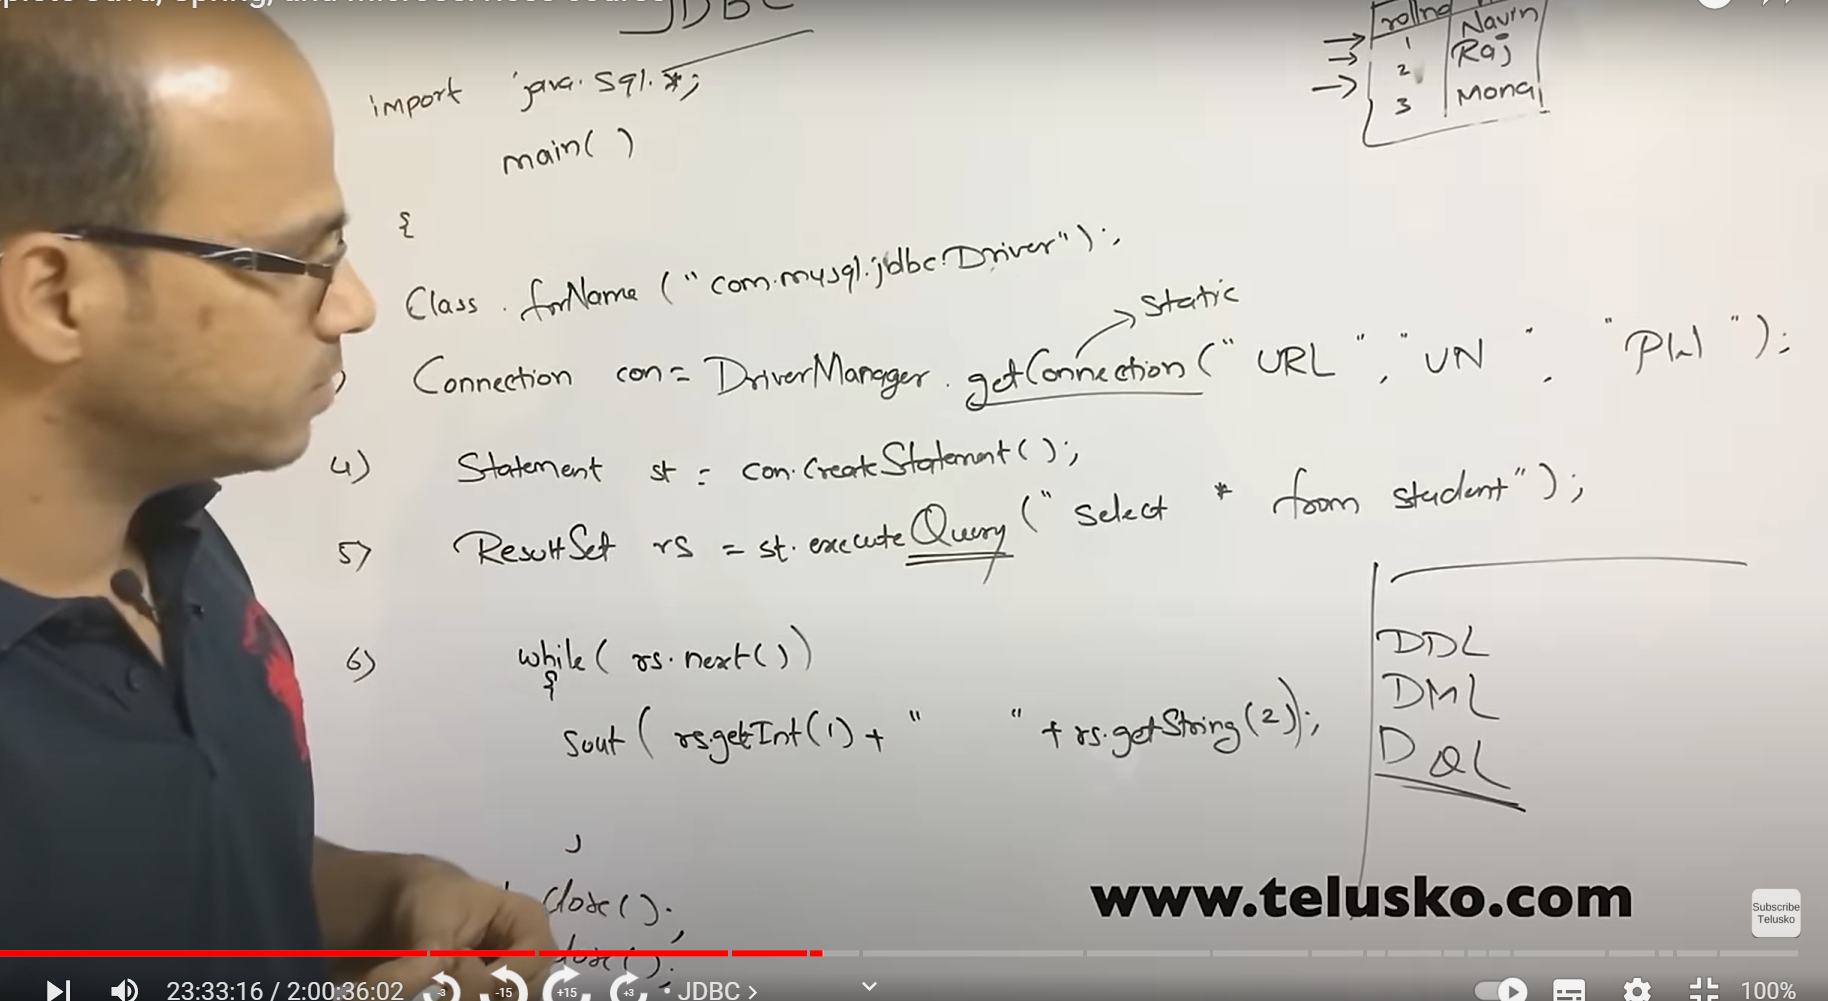 JDBC
rollno Navin
1 Raj
2 Monal
3
import java.sql.*;
main( )
{
Class . forName ( "com.mysql.jdbc.Driver" );
static
) Connection con = DriverManager . getConnection ( "URL", "UN", "PW" );
4) Statement st = con.createStatement( );
5) ResultSet rs = st.executeQuery ( "select * from student" );
6) while( rs.next( ) )
{
Sout ( rs.getInt(1) + " " + rs.getString(2));
}
close( );
close( );
DDL
DML
DQL
www.telusko.com
Subscribe
Telusko
23:33:16 / 2:00:36:02
-3
-15
+15
+3
• JDBC >
100%